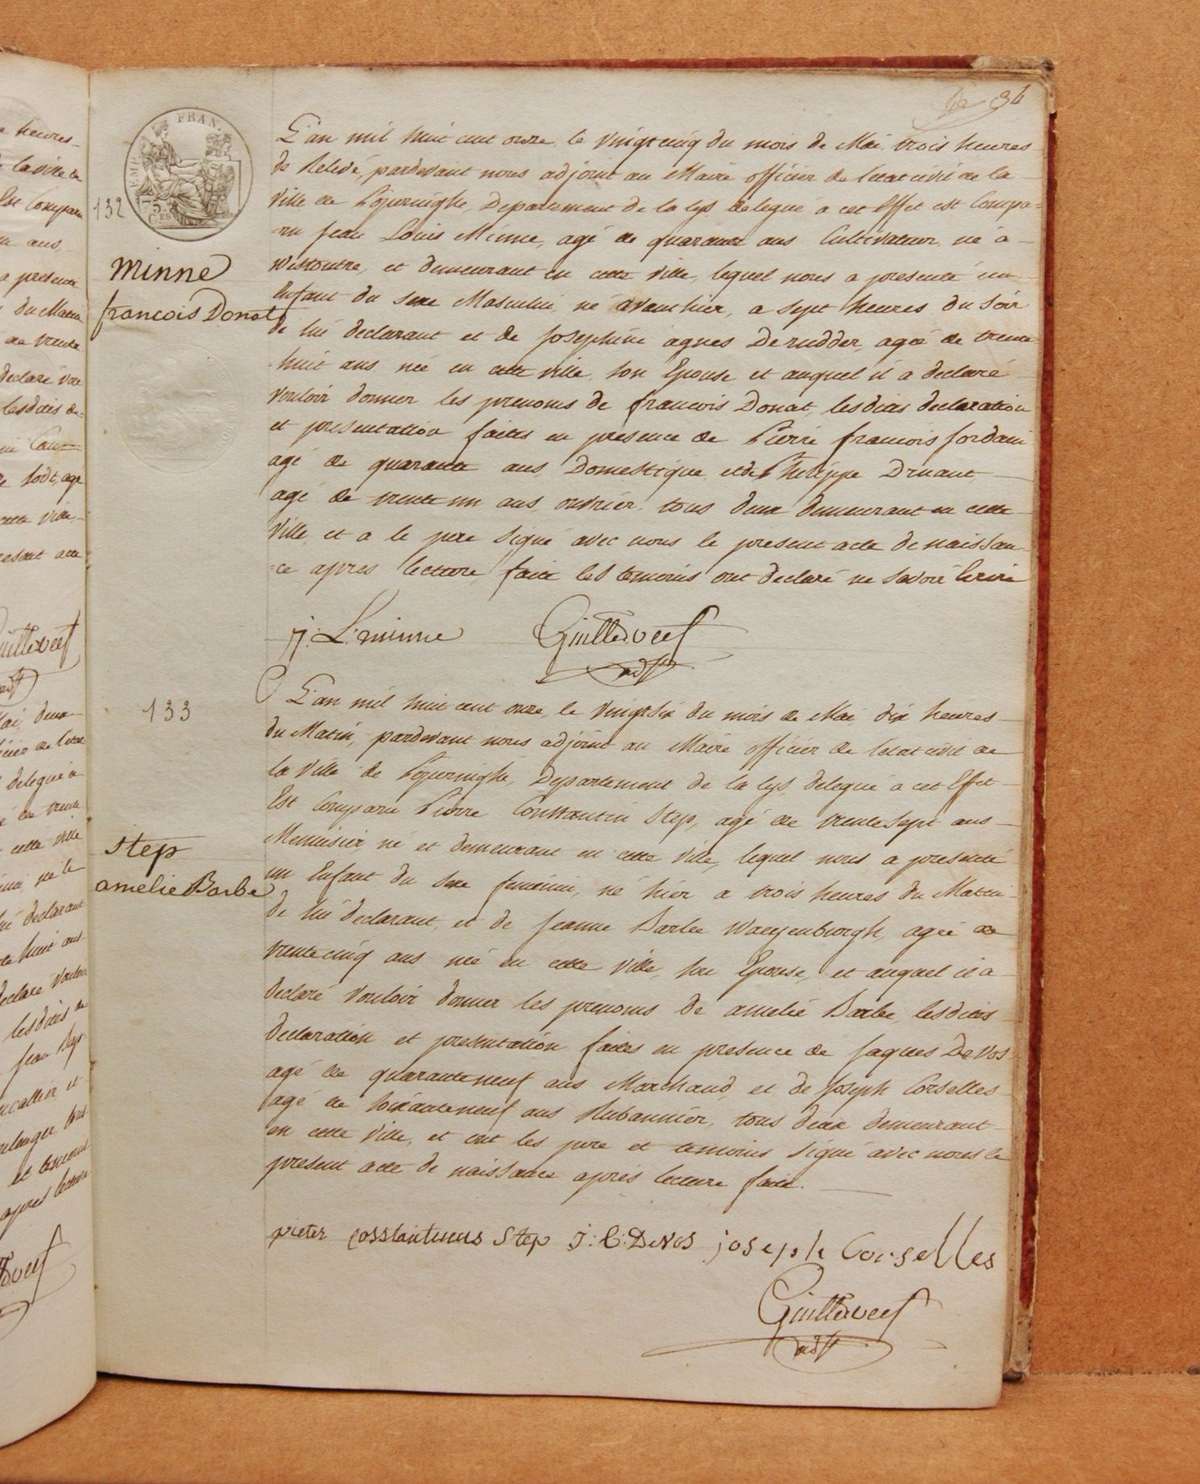 34
EMP. FRAN.
132
Minne
francois Donat
L'an mil huit cent onze, le vingtcinq du mois de Mai, trois heures
de Relevé, pardevant nous adjoint au Maire officier de l'etat civil de la
Ville de Poperinghe, Departement de la lys delegué a cet Effet est Compa-
ru Jean Louis Minne, agé de quarante ans Cultivateur, né à
Westoutre, et demeurant en cette ville, lequel nous a presenté un
Enfant du sexe Masculin, né avanthier, a sept heures du Soir
de lui declarant et de Josephine agnes Derudder, agée de trente
huit ans née en cette ville, son Epouse et auquel il a declaré
vouloir donner les prenoms de francois Donat, lesdites declaration
et presentation faites en presence de Pierre francois Jordain
agé de quarante ans Domestique, et de Philippe Druant
agé de trente un ans ouvrier, tous deux demeurant en cette
Ville, et a le pere signé avec nous le present acte de naissan-
ce apres lecture faite les temoins ont declaré ne savoir Ecrire
j: L: minne Guilledveef
adjt
133
Step
amelie Barbe
L'an mil huit cent onze, le vingtsix du mois de Mai dix heures
du Matin, pardevant nous adjoint au Maire officier de l'etat civil de
la Ville de Poperinghe, Departement de la lys, delegué a cet Effet
Est Comparu Pierre Constantin Step, agé de trentesept ans
Menuisier né et demeurant en cette ville, lequel nous a presenté
un Enfant du sexe feminin, né hier a trois heures du Matin
de lui declarant, et de Jeanne Barbe Waeyenburgh, agée de
trentecinq ans née en cette Ville, son Epouse, et auquel il a
declaré vouloir donner les prenoms de amelie Barbe, lesdites
declaration et presentation faites en presence de Jaques De Vos
agé de quaranteneuf ans Marchand, et de Joseph Corselles
agé de soixanteneuf ans Rubannier, tous deux demeurant
en cette Ville, et ont les pere et temoins signé avec nous le
present acte de naissance après lecture faite.
pieter Constantinus Step J: C: DeVos joseph Corselles
Guilledveef
adjt